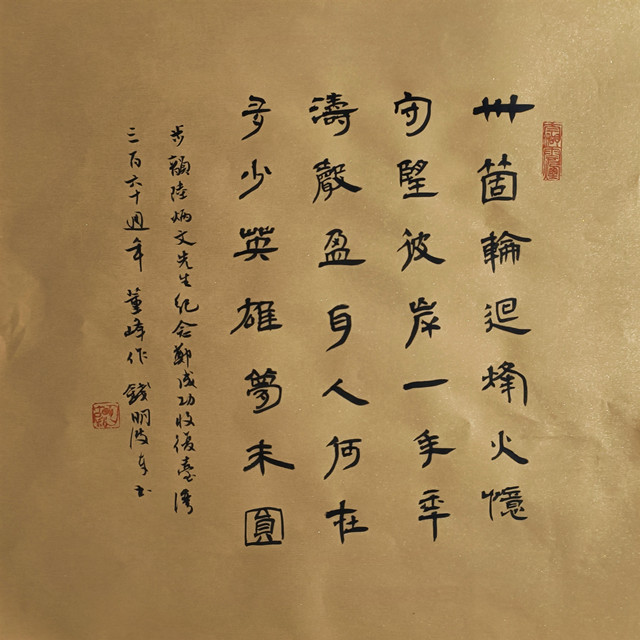 卅箇輪迴烽火憶
守望彼岸一年年
濤聲盈耳人何在
多少英雄夢未圓
步韻陸炳文先生紀念鄭成功收復臺灣
三百六十週年 董峰作 錢明波 书